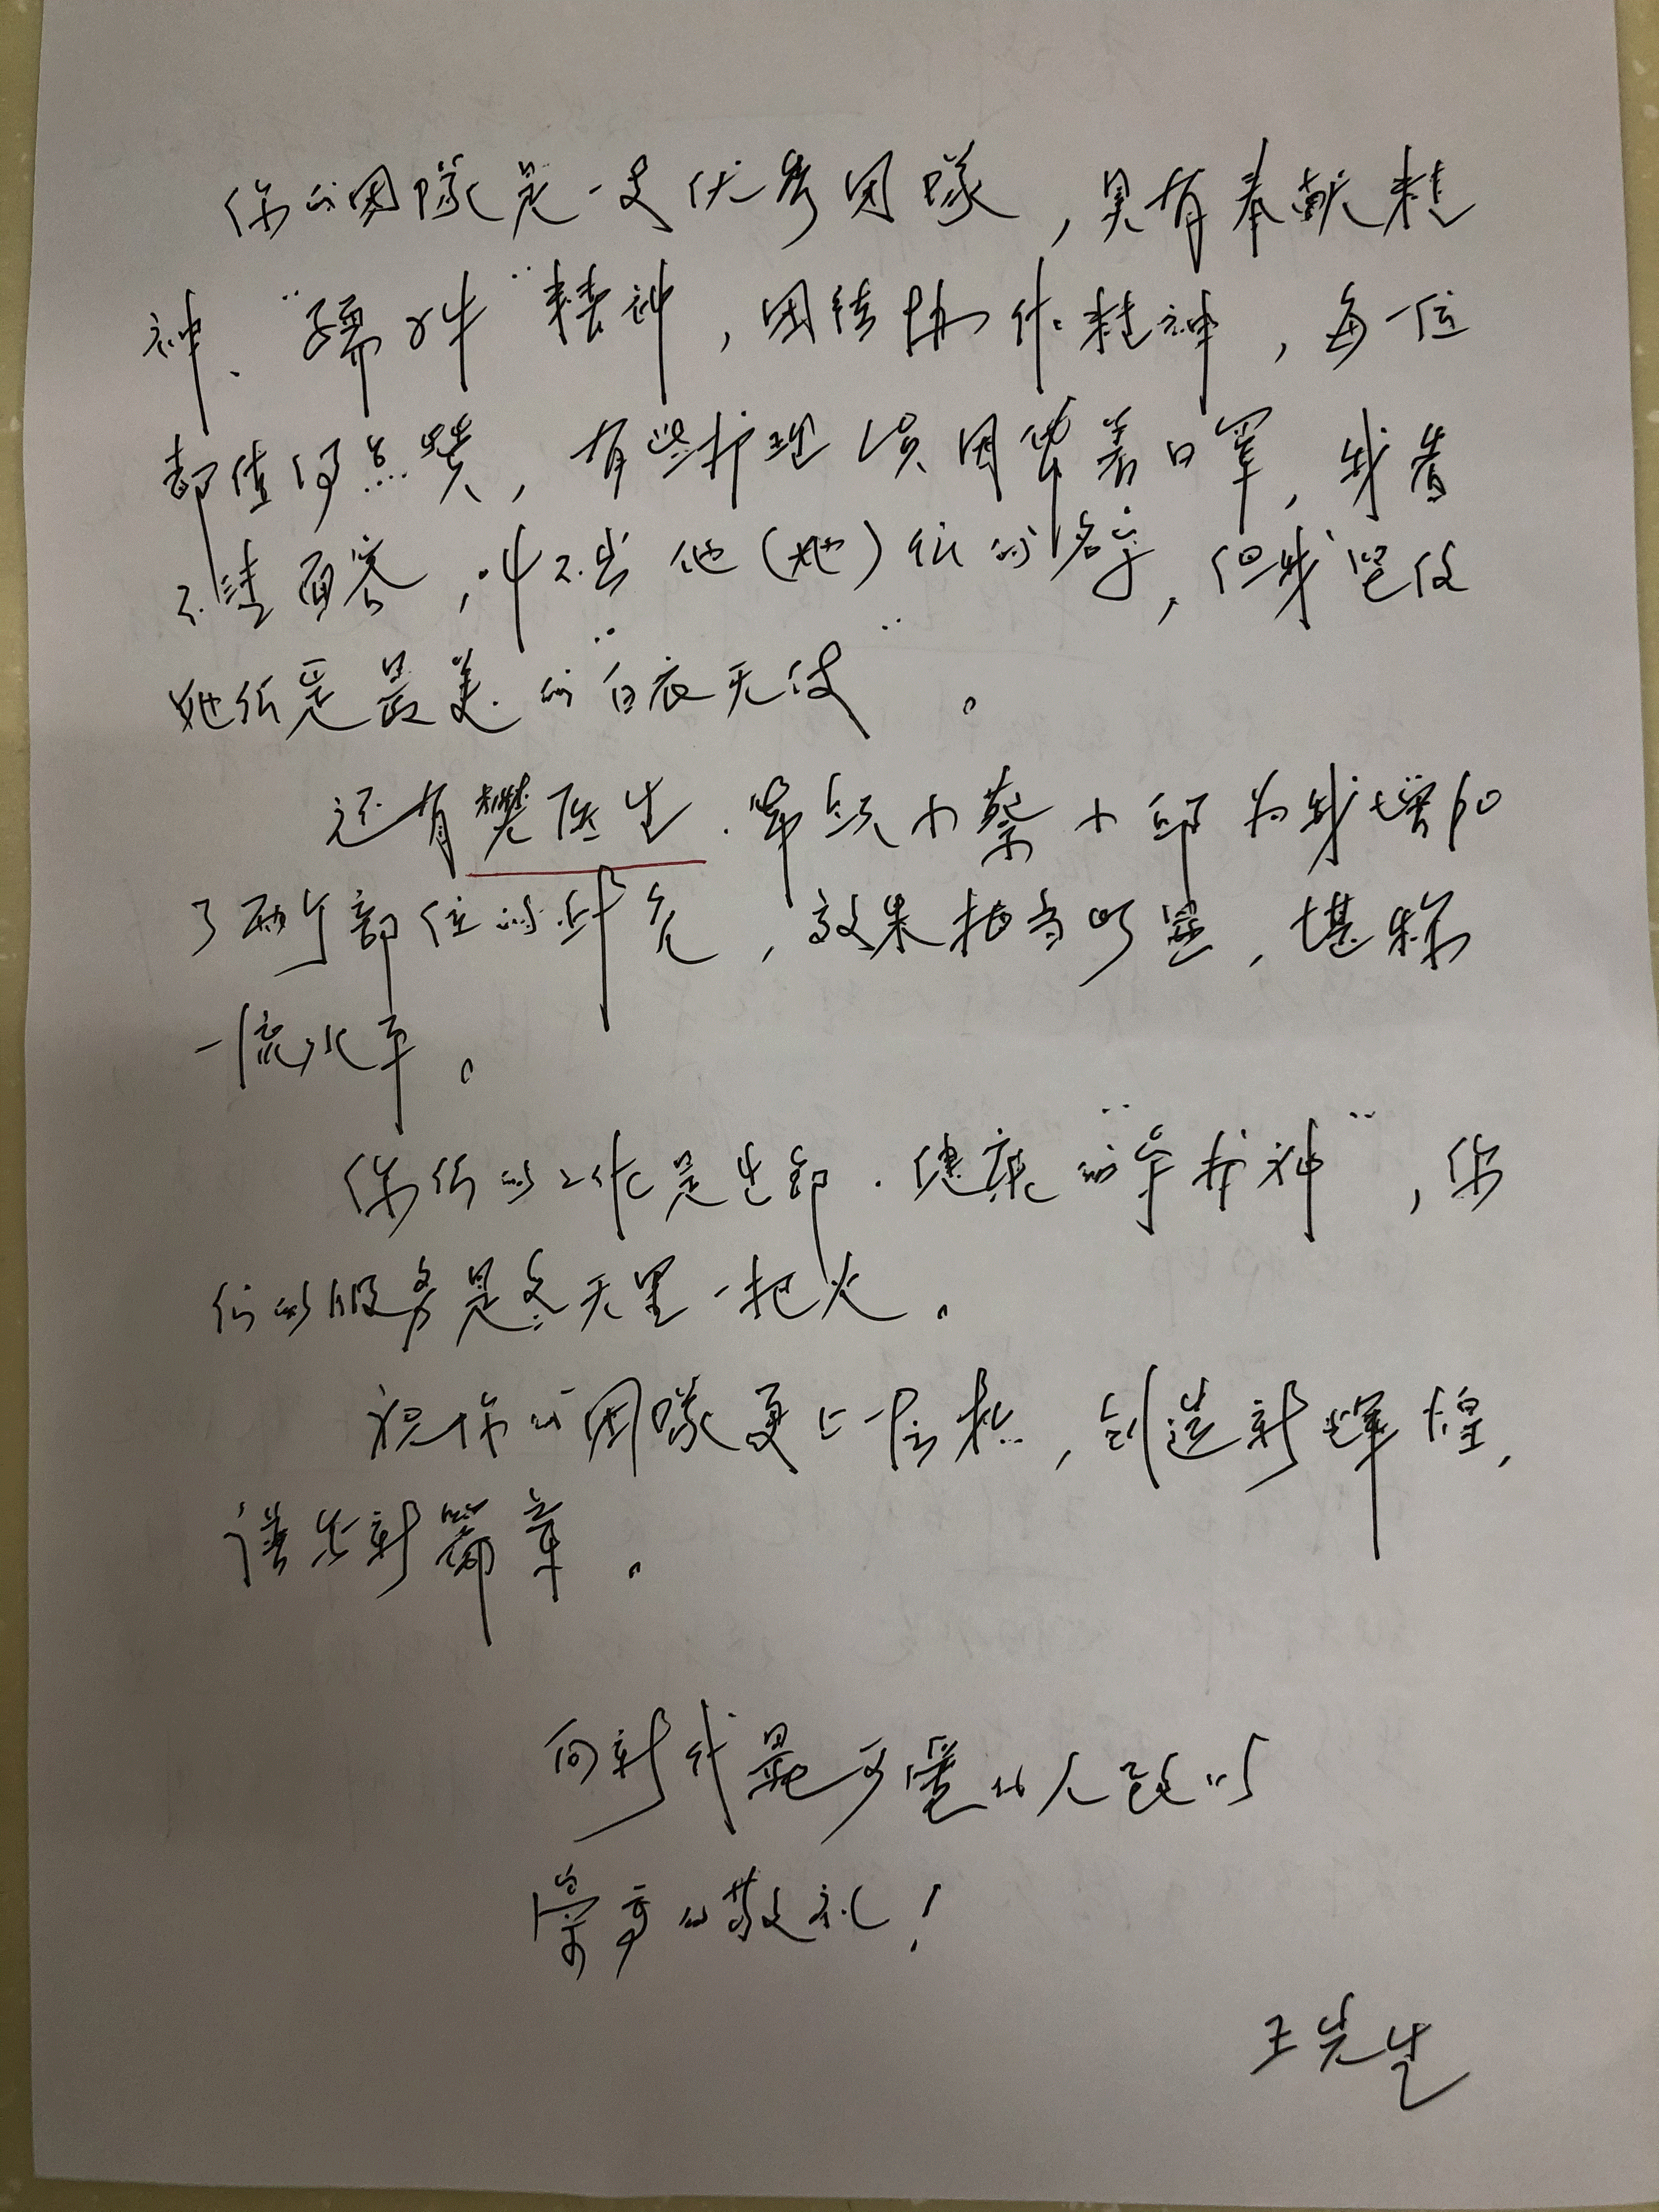 你的团隊是一支优秀团隊，具有奉献精
神、“孺子牛”精神，团结协作精神，每一位
都值得点赞，有些护理员因带着口罩，我看
不清面容，叫不出他（她）们的名字，但我坚信
她们是最美的“白衣天使”。
还有樊医生．带领小蔡小邱为我增加
了两个部位的，效果相当明显，堪称
一流水平。
你们的工作是生命．健康的“守护神”，你
们的服务是冬天里一把火。
祝你的团隊更上一层楼，创造新輝煌，
谱出新篇章。
向新时代最可爱的人致以
崇高的敬礼！
王先生